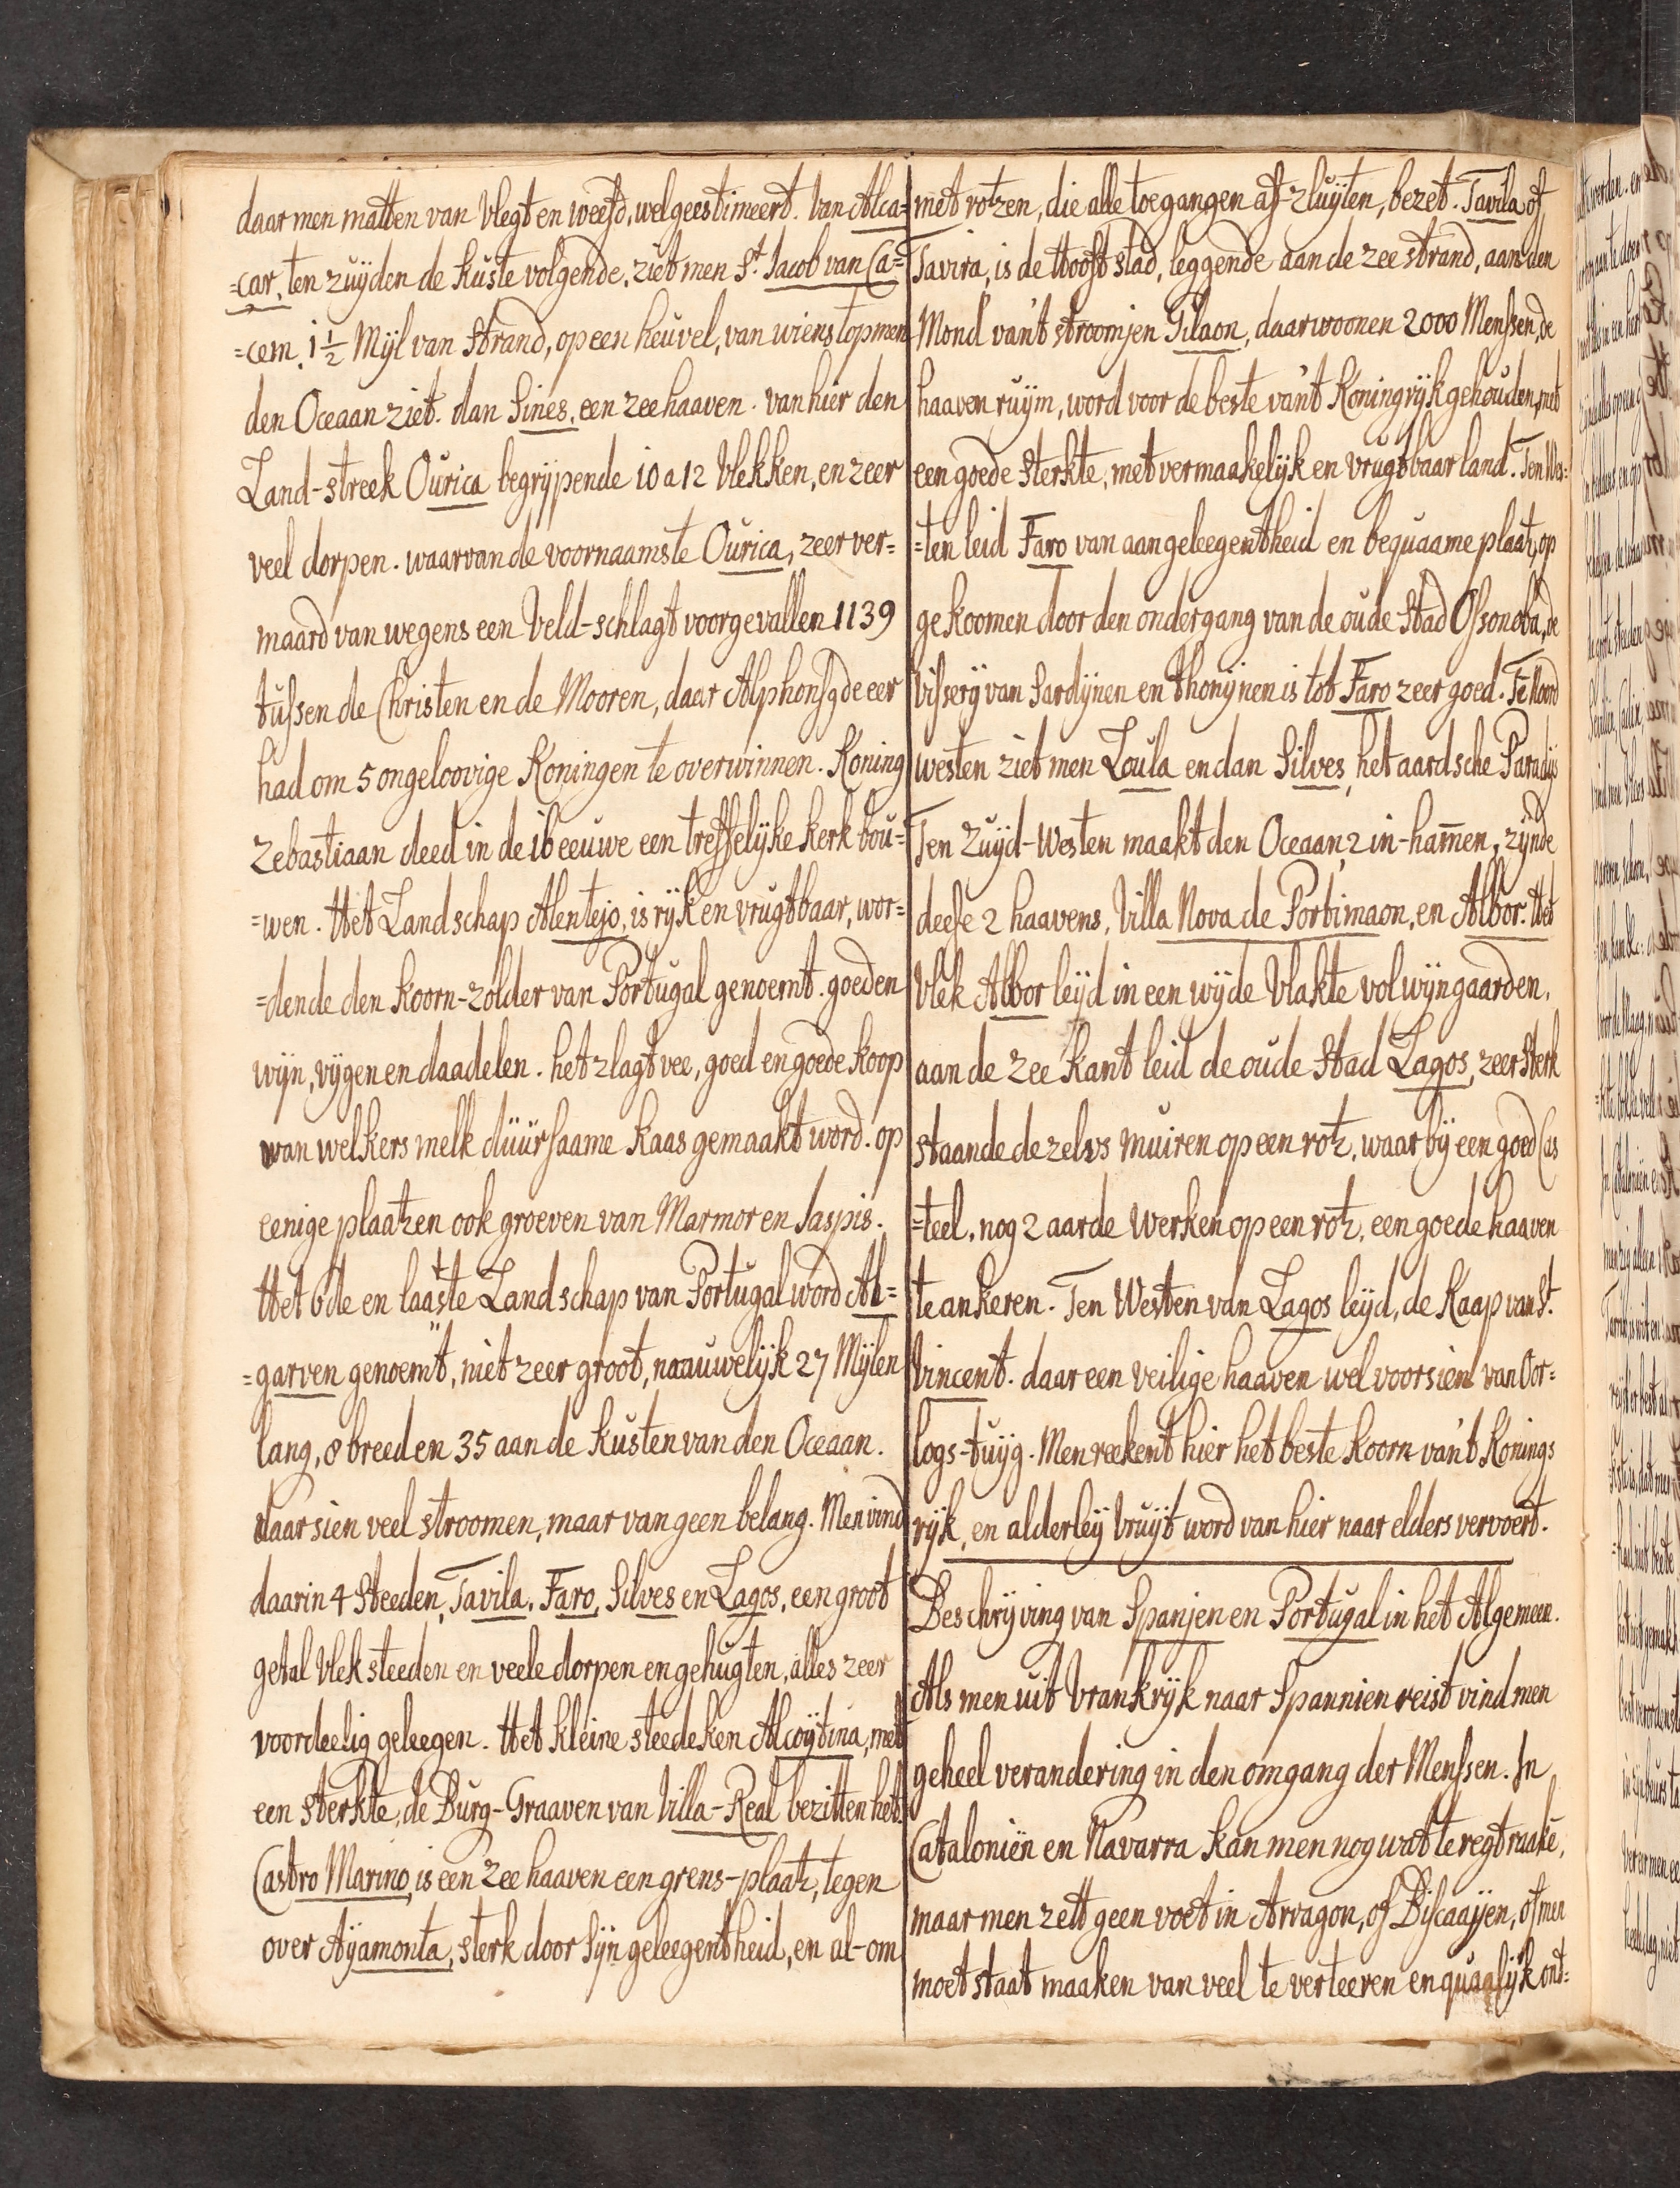 daar men matten van vlegt en weefd, wel geestimeert. Van Alca=
=car, ten zuyden de kuste volgende, ziet men St. Jacob van Ca=
=cem, 1 1/2 Myl van strand, op een heuvel, van wiens top men
den Oceaan ziet. dan Sines, een zeehaaven. van hier den
Land-streek Ourica begrypende 10 a 12 vlekken, en zeer
veel dorpen. waarvan de voornaamste Ourica, zeer ver=
maard van wegens een Veld-schlagt voorgevallen 1139
tussen de Christen en de Mooren, daar Alphons de eer
had om 5 ongeloovige Koningen te overwinnen. Koning
Zebastiaan deed in de 16 eeuwe een treffelyke kerk bou=
=wen. Het Landschap Alentejo, is ryk en vrugtbaar, wor=
=dende den koorn-zolder van Portugal genoemt. goeden
wyn, vygen en daadelen. het zlagtvee, goed en goede koop
van welkers melk duursaame kaas gemaakt word. op
eenige plaatzen ook groeven van Marmor en Jaspis.
Het 6de en laatste Landschap van Portugal word Al=
=garven genoemt, niet zeer groot, naauwelyk 27 Mylen
lang, 8 breed en 35 aan de kusten van den Oceaan.
daar sien veel stroomen, maar van geen belang. Men vind
daarin 4 Steeden, Tavila, Faro, Silves en Lagos, een groot
getal vleksteeden en veele dorpen en gehugten, alles zeer
voordeelig geleegen. Het kleine steedeken Alcoytina, met
een sterkte, de Burg-Graaven van Villa-Real bezitten het.
Castro Marino, is een zeehaaven een grens-plaatz, tegen
over Ayamonta, sterk door syn geleegentheid, en al-om
met rotzen, die alle toegangen af-zluyten, bezet. Tavila of
Tavira, is de Hooft stad, leggende aan de zee strand, aan den
Mond van't stroomjen Gilaon, daar woonen 2000 Menssen, de
haaven ruym, word voor de beste van't Koningryk gehouden, met
een goede sterkte, met vermaakelyk en vrugtbaar land. Ten Wes=
=ten leid Faro van aangeleegentheid en bequaame plaatz, op
gekoomen door den ondergang van de oude stad Ossonoba, de
vissery van Sardynen en Thonynen is tot Faro zeer goed. Te Noord
westen ziet men Loula en dan Silves, het aardsche Paradys
Ten Zuyd-Westen maakt den Oceaan, 2 in-hammen, zynde
deese 2 haavens, Villa Nova de Portimaon, en Albor. Het
Vlek Albor leyd in een wyde vlakte vol wyngaarden.
aan de zee kant leid de oude stad Lagos, zeer sterk
staande dezelvs muiren op een rotz, waar by een goed Cas
=teel, nog 2 aarde werken op een rotz, een goede haaven
te ankeren. Ten Westen van Lagos leyd, de Kaap van St.
Vincent. daar een veilige haaven wel voorsien van Oor=
logs-tuyg. Men reekent hier het beste koorn van't Konings
ryk, en alderley vruyt word van hier naar elders vervoert.
Beschryving van Spanjen en Portugal in het Algemeen.
Als men uit Vrankryk naar Spannien reist vind men
geheel verandering in den omgang der Menssen. In
Cataloniën en Navarra kan men nog wat te regt raake,
maar men zett geen voet in Arragon, of Biscaayen, of men
moet staat maaken van veel te verteeren en qualyk ont=